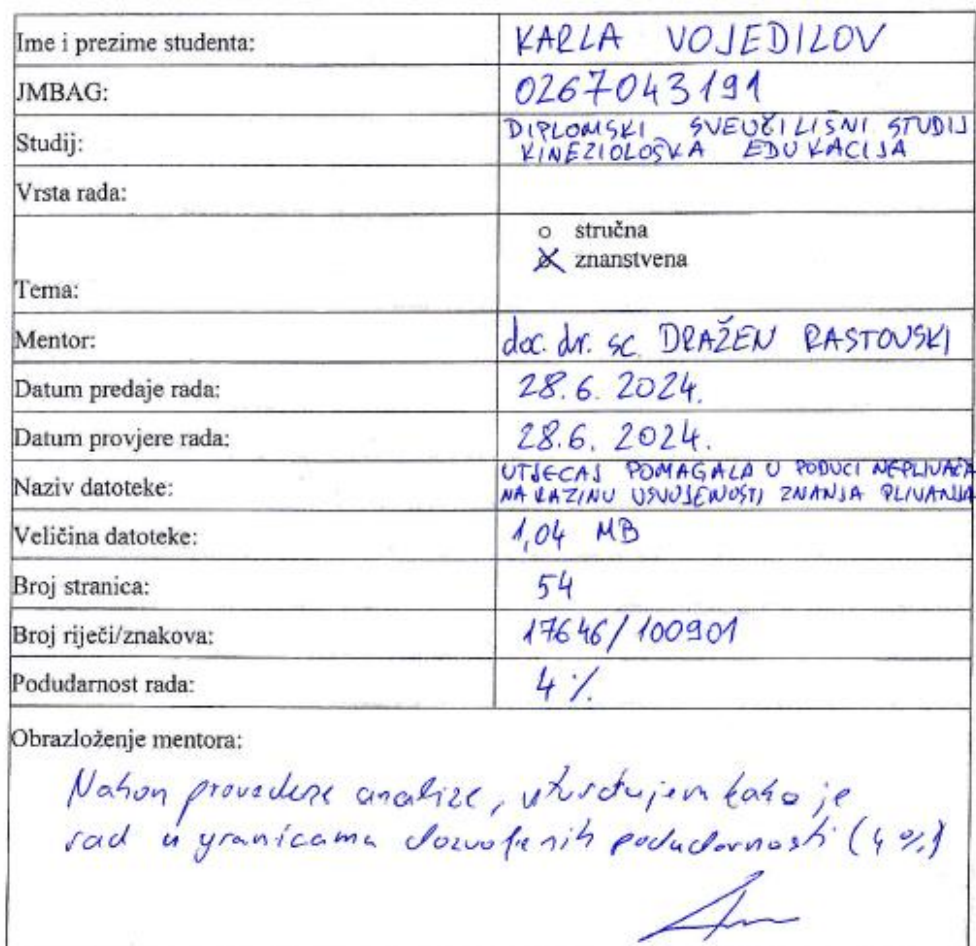 Ime i prezime studenta: KARLA VOJEDILOV
JMBAG: 0267043191
Studij: DIPLOMSKI SVEUČILIŠNI STUDIJ
KINEZIOLOŠKA EDUKACIJA
Vrsta rada:
o stručna
o znanstvena
Tema:
Mentor: doc. dr. sc. DRAŽEN RASTOVSKI
Datum predaje rada: 28.6.2024.
Datum provjere rada: 28.6.2024.
Naziv datoteke: UTJECAJ POMAGALA U PODUCI NEPLIVAČA
NA RAZINU USVOJENOSTI ZNANJA PLIVANJA
Veličina datoteke: 1,04 MB
Broj stranica: 54
Broj riječi/znakova: 17646/100901
Podudarnost rada: 4%
Obrazloženje mentora:
Nakon provedene analize, utvrđujem kako je
rad u granicama dozvoljenih podudarnosti (4%)